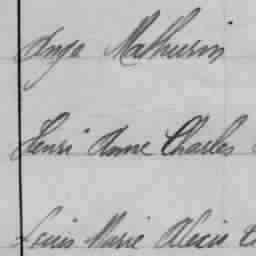 Ange Mathurin
Henri Anne Charles
Louis Marie Alexis